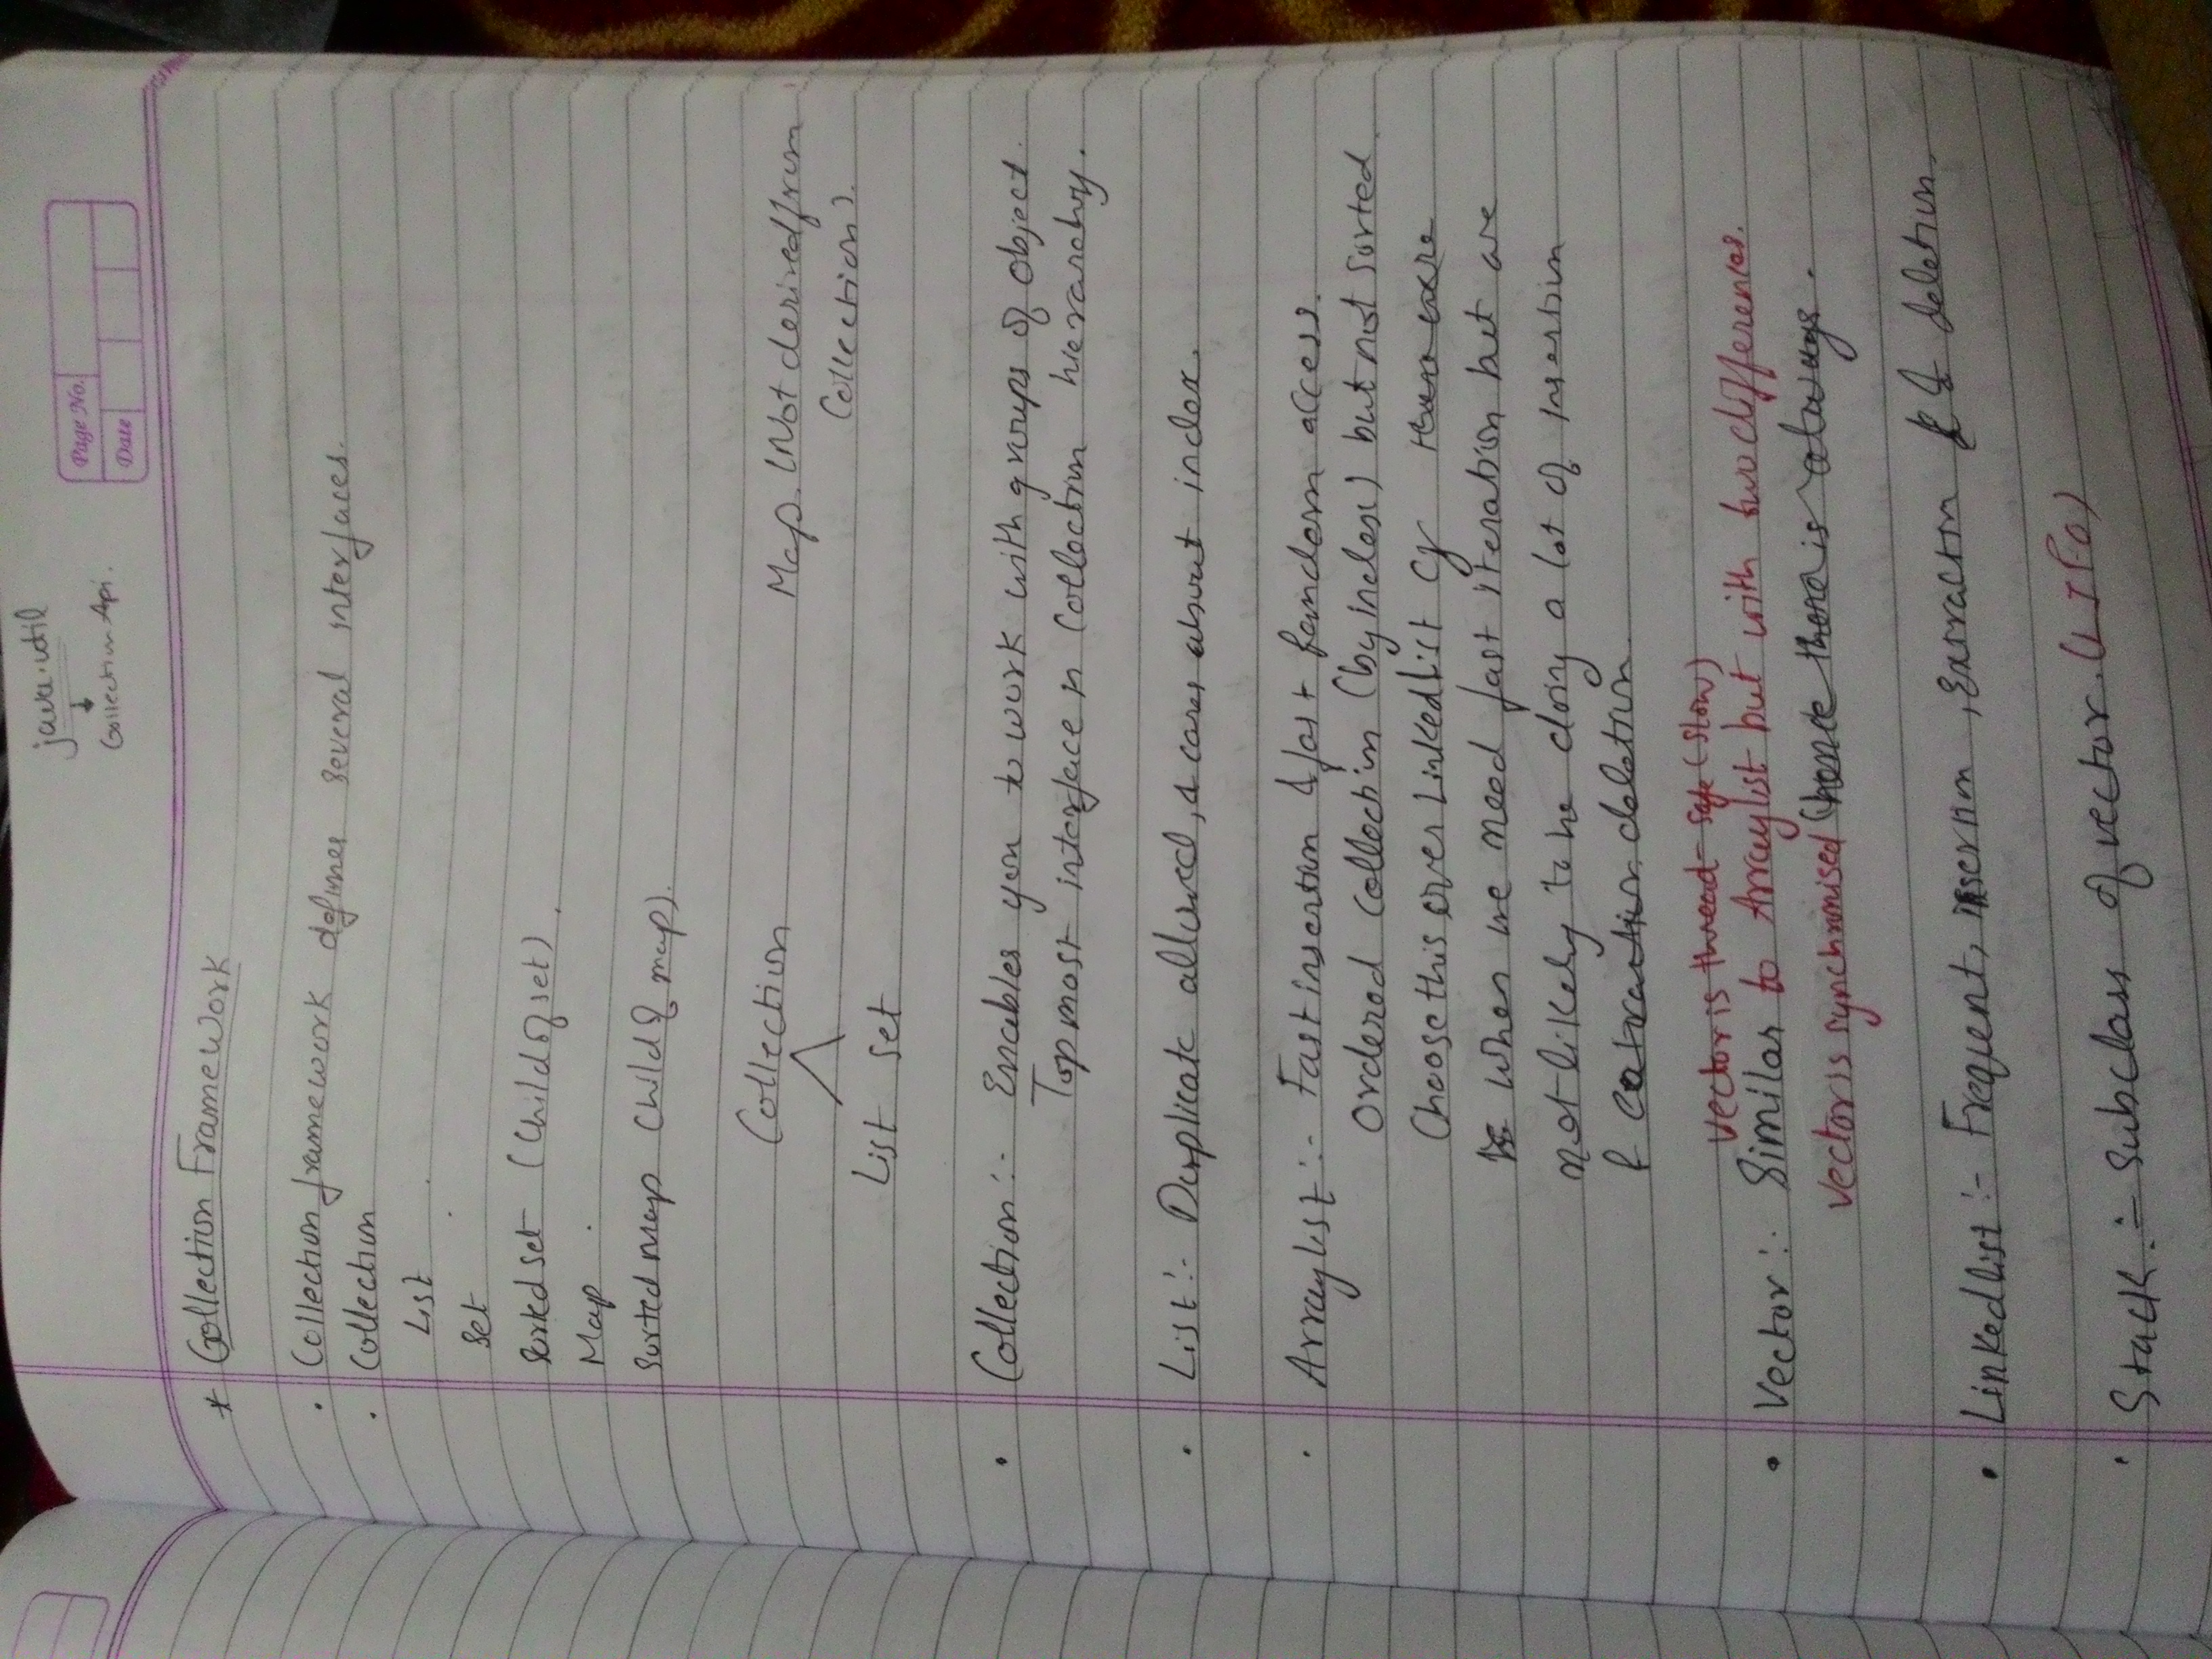 java.util
↓
Collection Api.
Page No.
Date
* Collection FrameWork
. Collection framework defines several interfaces.
. Collection
List
Set
Sorted set (Child of set).
Map
Sorted map Child of map).
Collection
Map. (Not derived from
Collection).
List set
• Collection :- Enables you to work with groups of object.
Topmost interface in Collection hierarchy.
• List :- Duplicate allowed, & cares about index.
• Arraylist :- Fast insertion & fast random access.
Ordered collection (by index) but not sorted
Choose this over Linkedlist
when we need fast iteration but are
not likely to be doing a lot of insertion
& extraction deletion.
Vector is thread-safe (slow)
• Vector :- Similar to Arraylist but with two differences.
Vector is synchronised (hence there is always.
• Linkedlist :- Frequent, insertion, Extraction & deletion.
• Stack :- Subclass of vector. (LIFO)